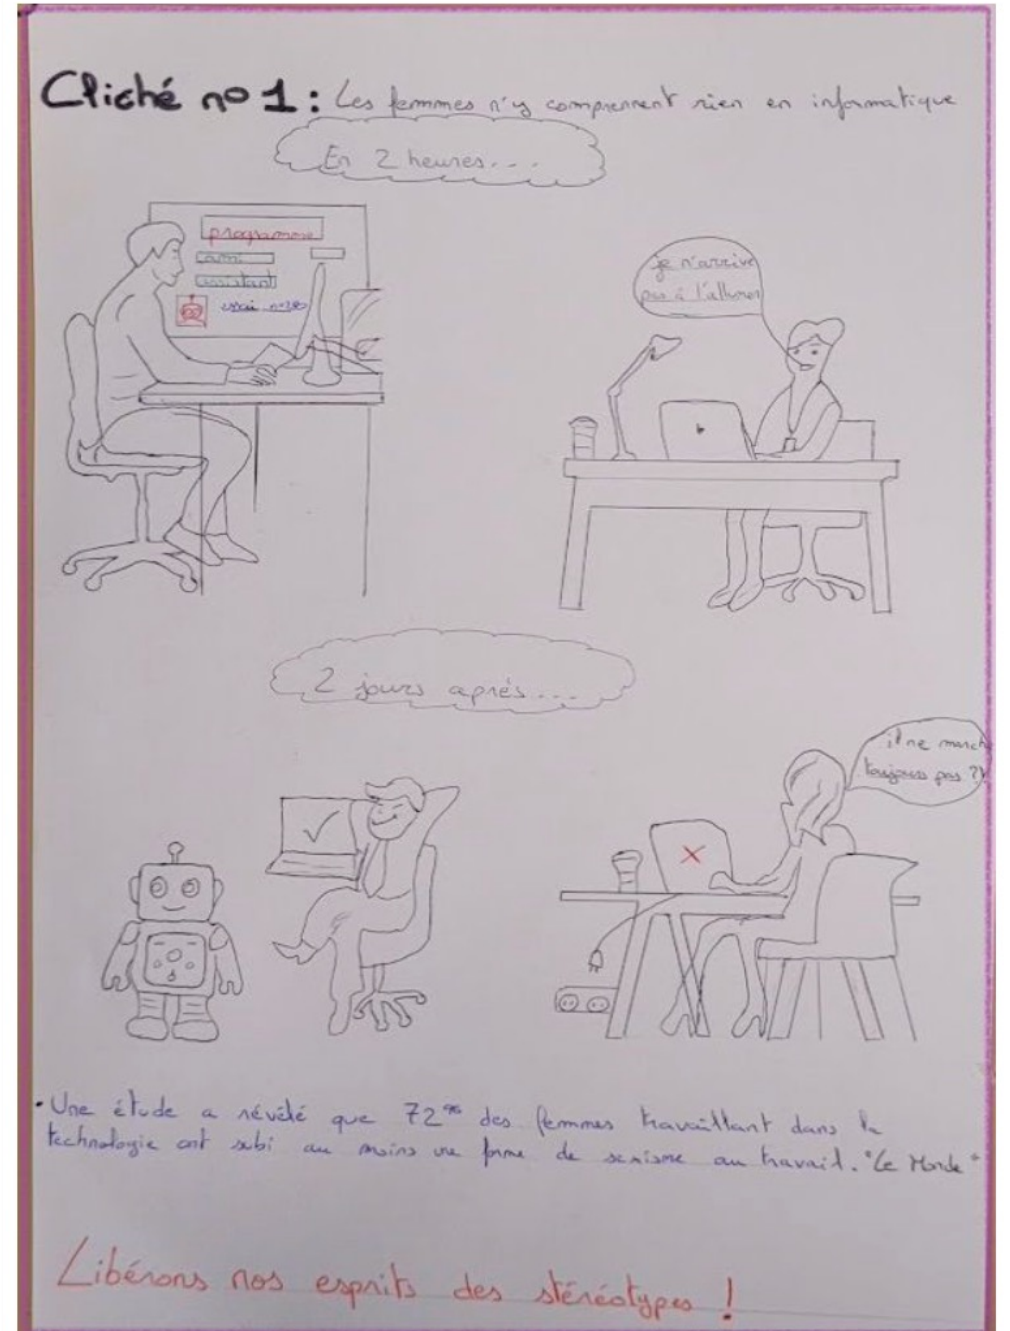 Cliché n° 1 : Les femmes n'y comprennent rien en informatique
En 2 heures...
programme
ami
assistant
essai n°280
je n'arrive
pas à l'allumer
2 jours après...
il ne march
toujours pas ?!
• Une étude a révélé que 72% des femmes travaillant dans la
technologie ont subi au moins une forme de sexisme au travail. "Le Monde"
Libérons nos esprits des stéréotypes !